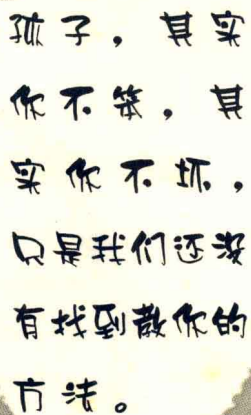 孩子，其实
你不笨，其
实你不坏，
只是我们还没
有找到教你的
方法。